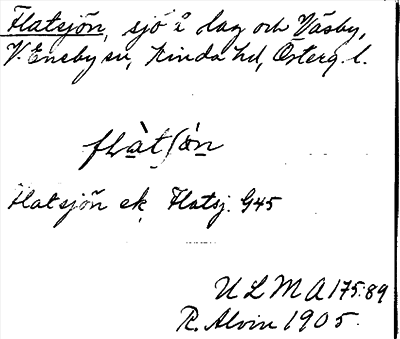 Flatsjön, sjö å dag och Väsby,
V. Eneby sn, Kinda hd, Österg. l.
flàtſö̀n
Flatsjön ek. Flatsj. G45
ULMA 175:89
R. Alvin 1905.